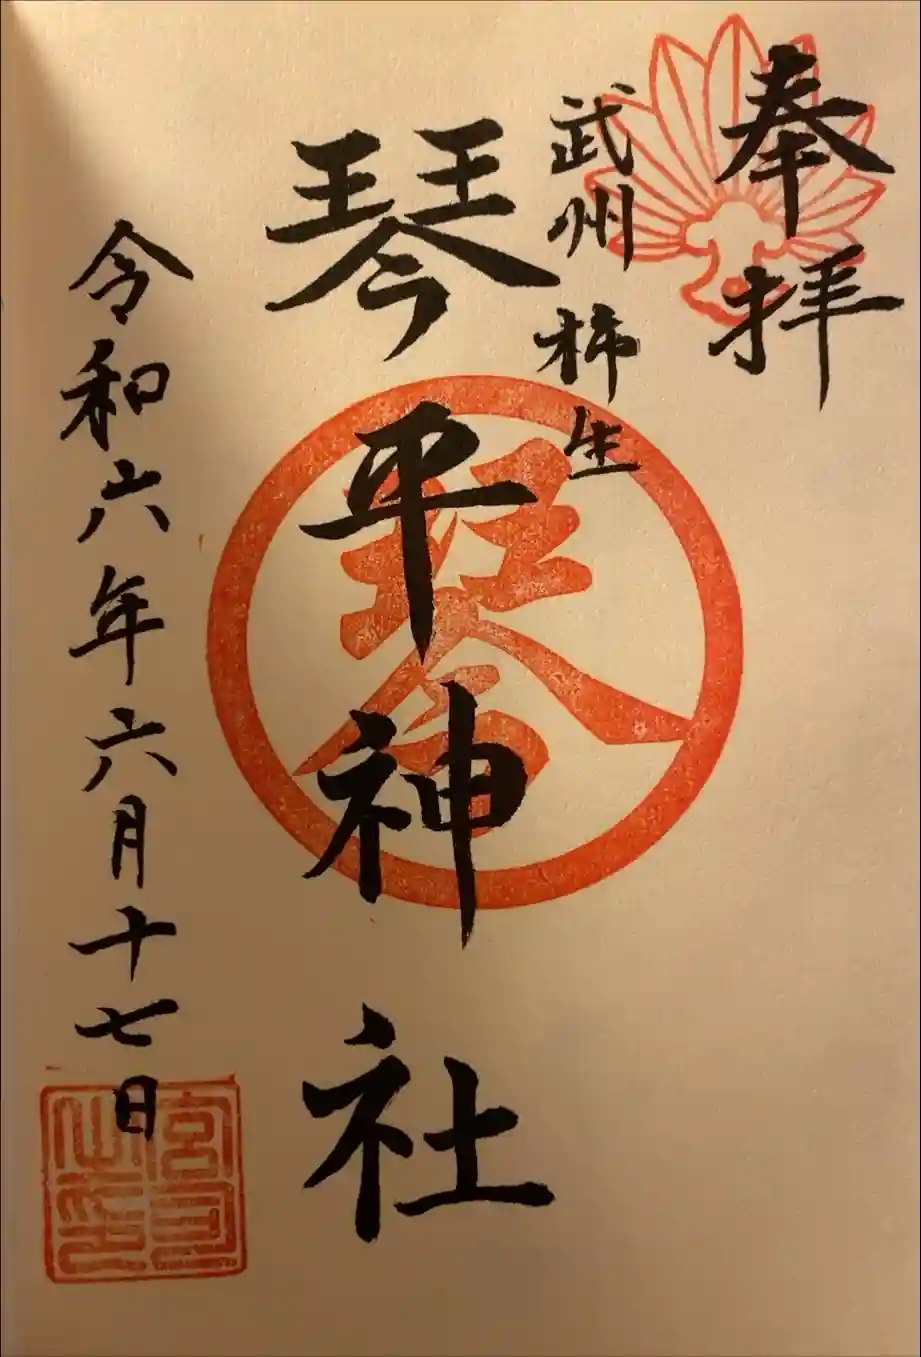 奉拝
武州 柿生
琴平神社
琴
令和六年六月十七日
宮司之印